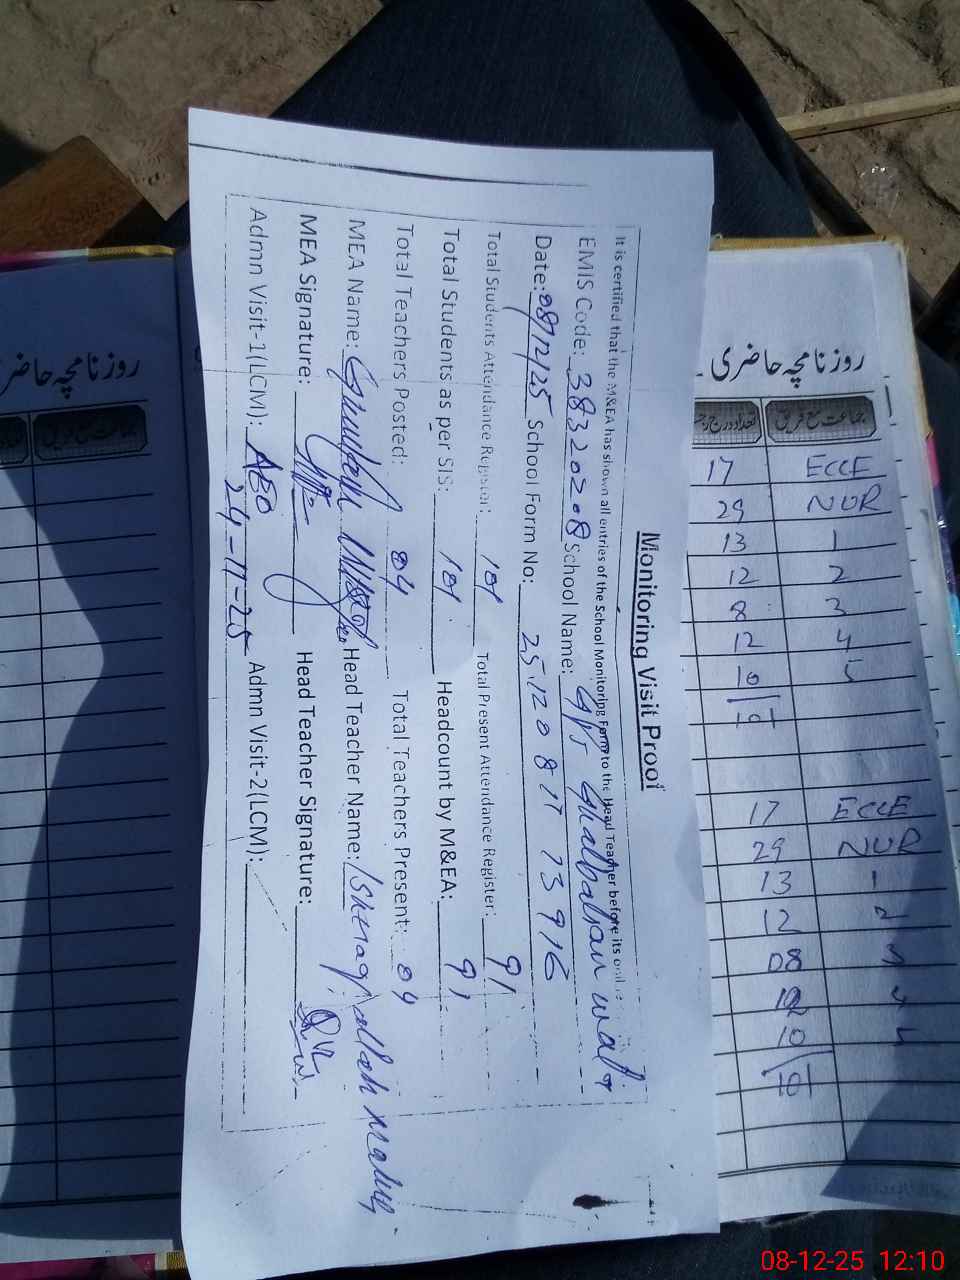 Monitoring Visit Proof
It is certified that the M&EA has shown all entries of the School Monitoring Form to the Head Teacher before its
EMIS Code: 38320208 School Name: GPS
Date: 08/12/25 School Form No: 25120817 73916
Total Students Attendance Register: 101 Total Present Attendance Register: 91
Total Students as per SIS: 101 Headcount by M&EA: 91
Total Teachers Posted: 04 Total Teachers Present: 04
MEA Name: Head Teacher Name:
MEA Signature: Head Teacher Signature:
Admn Visit-1(LCM): AEO 24-11-25 Admn Visit-2(LCM):
روزنامچہ حاضری
جماعت مع فریق تعداد درج رجسٹر
ECCE 17
NUR 29
1 13
2 12
3 8
4 12
5 10
101
ECCE 17
NUR 29
1 13
2 12
3 08
4 12
5 10
101
روزنامچہ حاضر
جماعت مع فریق
08-12-25 12:10